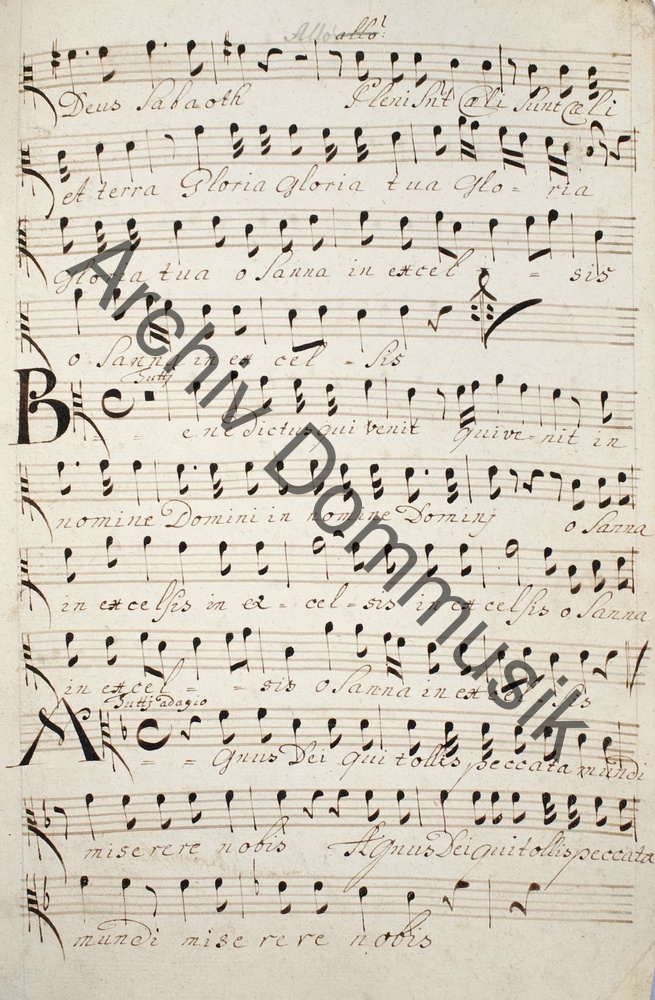 Allo allo:
Deus Sabaoth Pleni Sńt Cæli Sunt Cæli
et terra Gloria Gloria tua Glo = ria
Gloria tua o Sanna in excel = = sis
o Sanna in ex cel - sis
Tutti
B = = enedictus qui venit qui ve = nit in
nomine Domini in nomine Dominj o Sanna
in excelsis in ex = cel = sis in excelsis o Sanna
in excel = = sis o Sanna in excel sis
Tuttj adagio
A = = Gnus Dei qui tollis peccata mundi
miserere nobis Agnus Dei qui tollis peccata
mundi miserere nobis
Archiv Dommusik